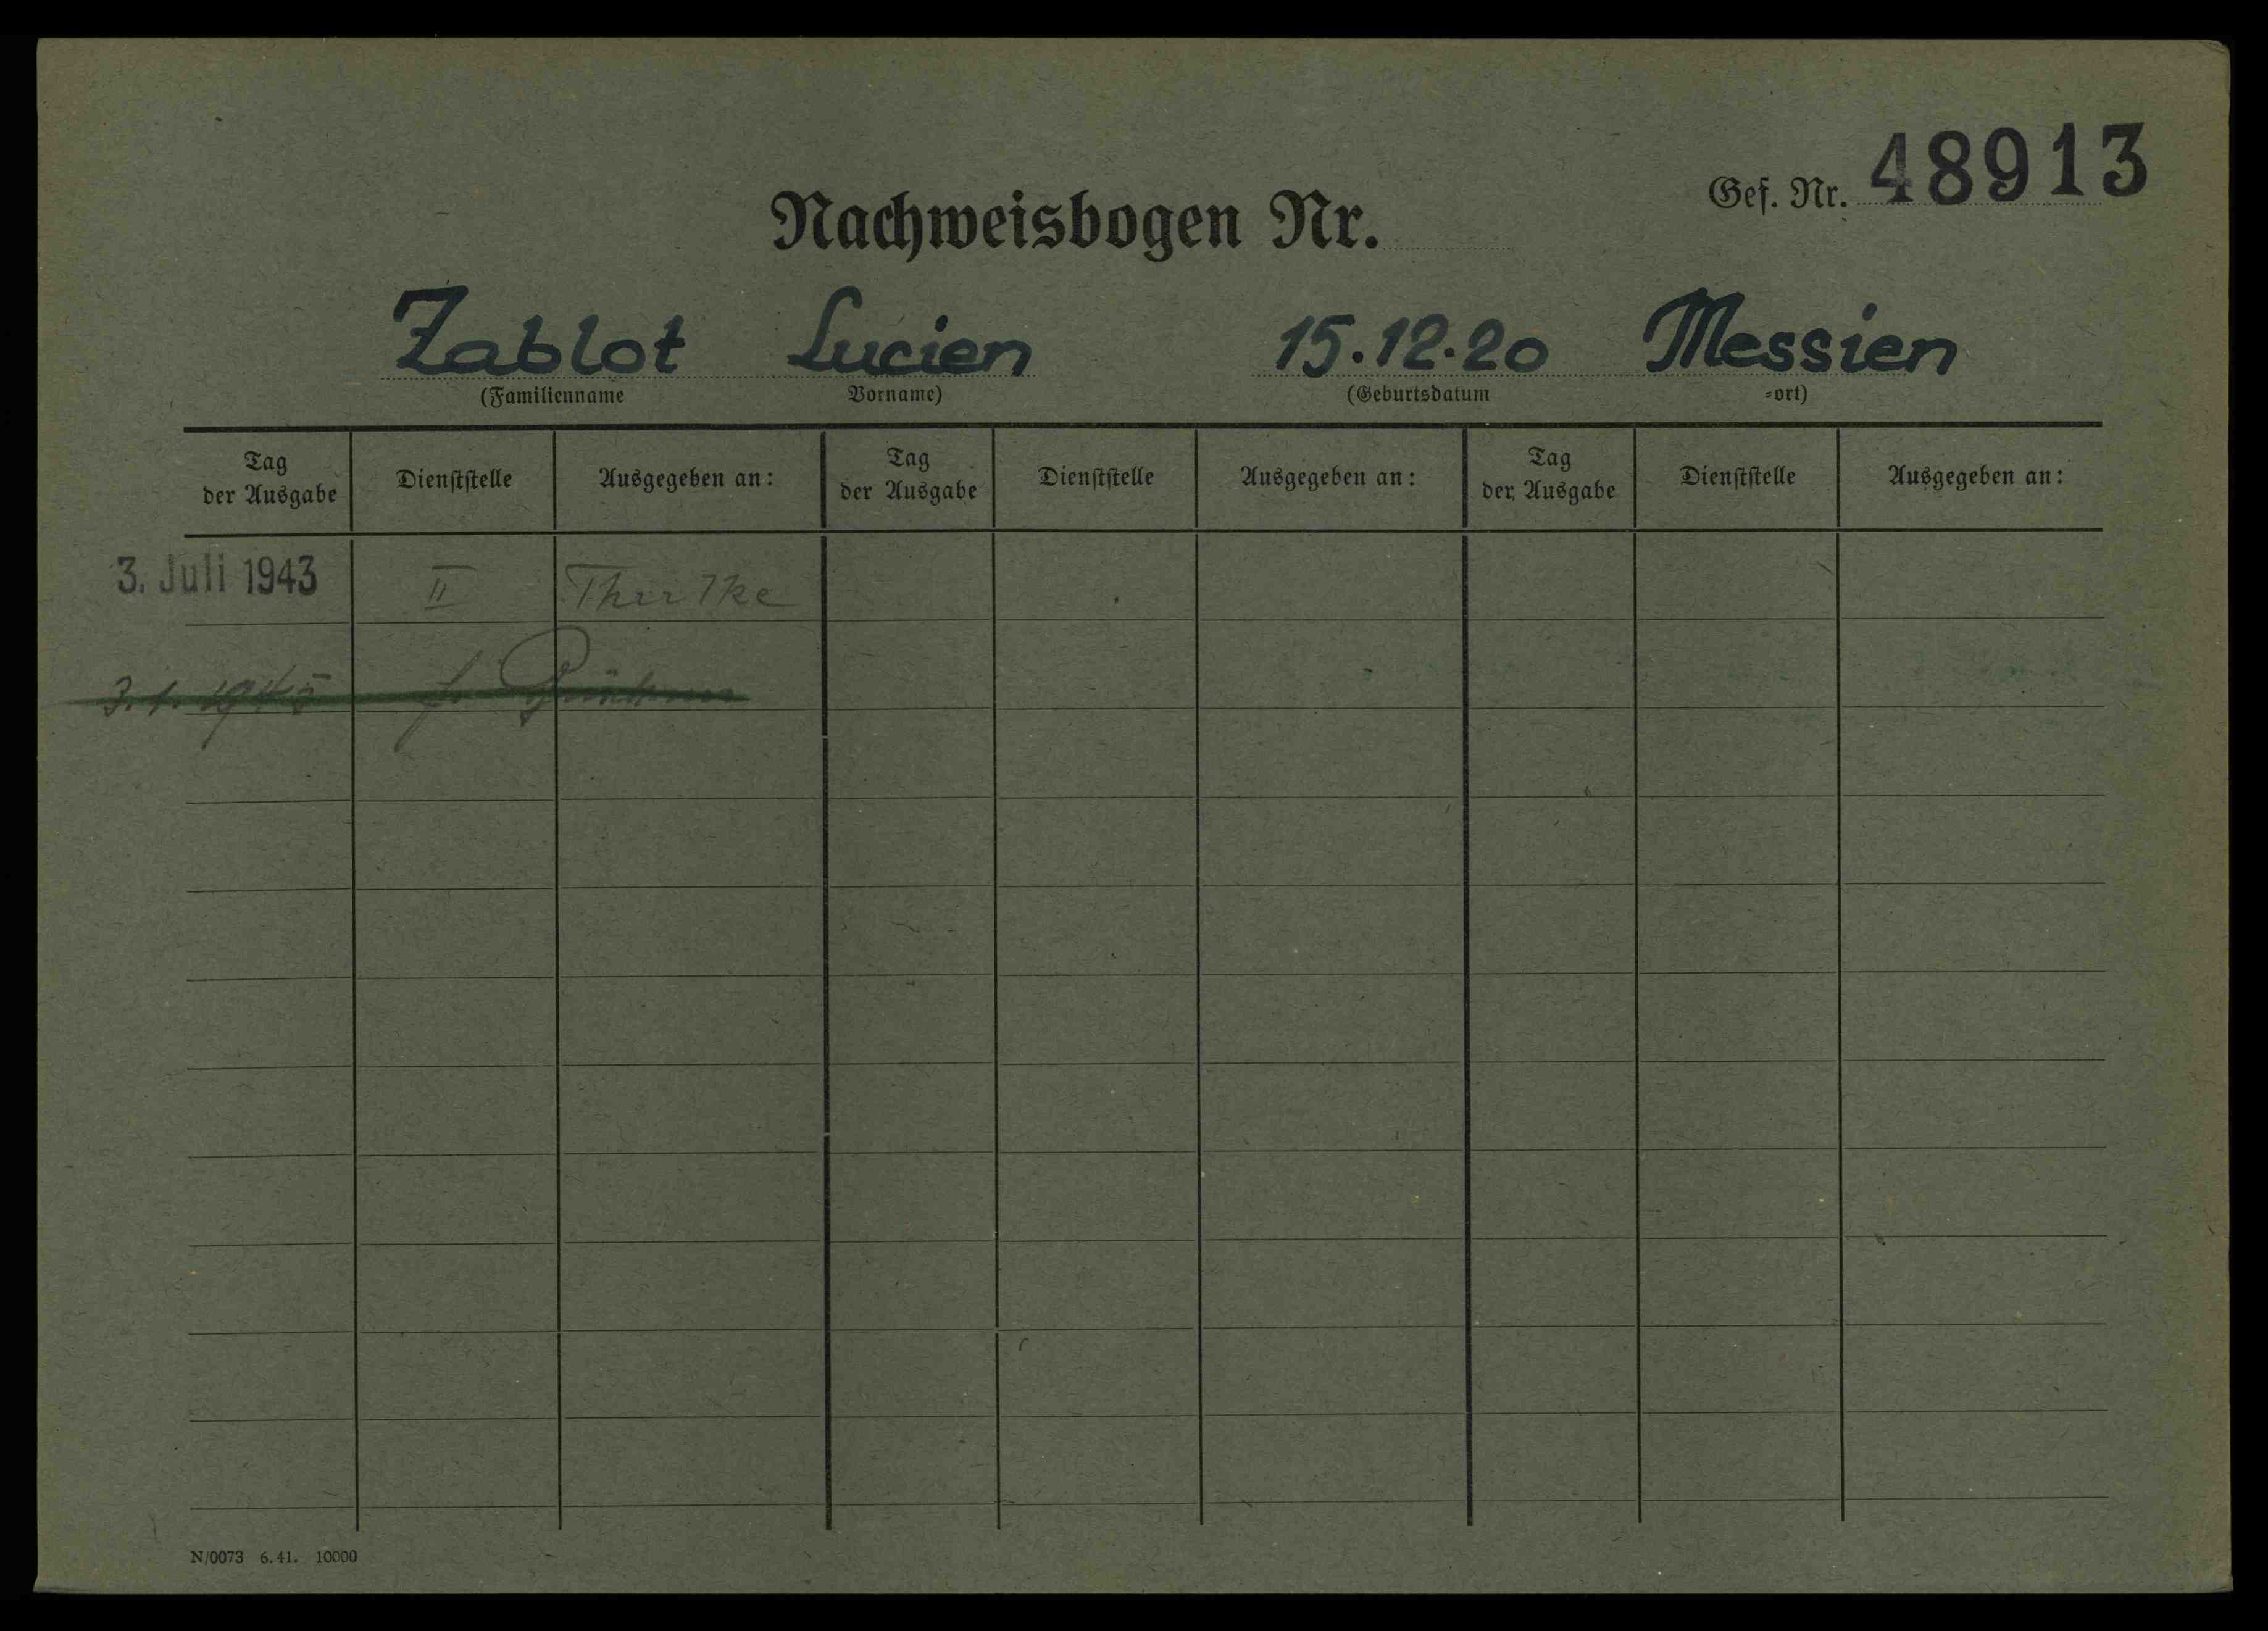 Gef. Nr. 48913
Nachweisbogen Nr.
Zablot Lucien 15.12.20 Messien
(Familienname Vorname) (Geburtsdatum -ort)
Tag der Ausgabe Dienststelle Ausgegeben an: Tag der Ausgabe Dienststelle Ausgegeben an: Tag der Ausgabe Dienststelle Ausgegeben an:
3. Juli 1943 II
3.1.1945
N/0073 6.41. 10000